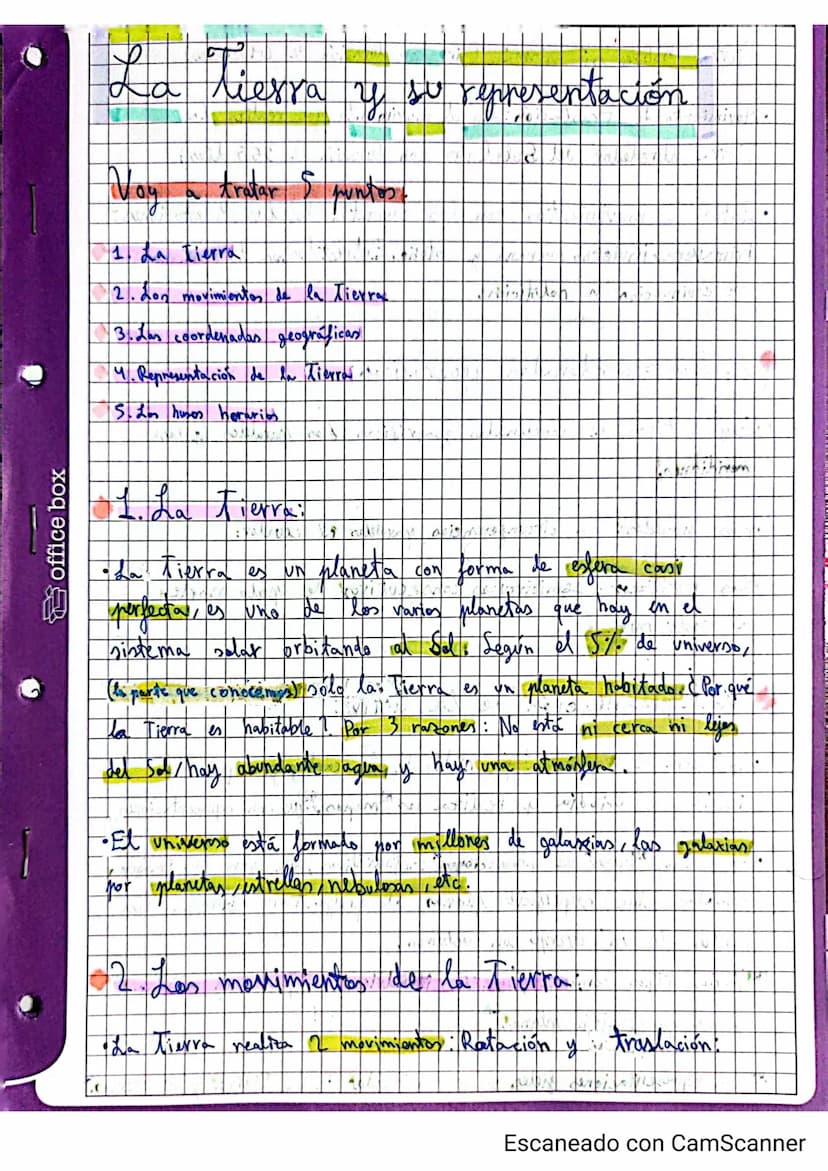 La Tierra y su representación
Voy a tratar 5 puntos.
1. La Tierra
2. Los movimientos de la Tierra
3. Las coordenadas geográficas
4. Representación de la Tierra
5. Los husos horarios
1. La Tierra:
• La Tierra es un planeta con forma de esfera casi
perfecta, es uno de los varios planetas que hay en el
sistema solar orbitando al Sol. Según el 5% de universo,
(la parte que conocemos) sólo la Tierra es un planeta habitado. ¿Por qué
la Tierra es habitable? Por 3 razones: No está ni cerca ni lejos
del Sol, hay abundante agua, y hay una atmósfera.
• El universo está formato por millones de galaxias, las galaxias
por planetas, estrellas, nebulosas, etc.
2. Los movimientos de la Tierra:
• La Tierra realiza 2 movimientos: Rotación y traslación:
office box
Escaneado con CamScanner